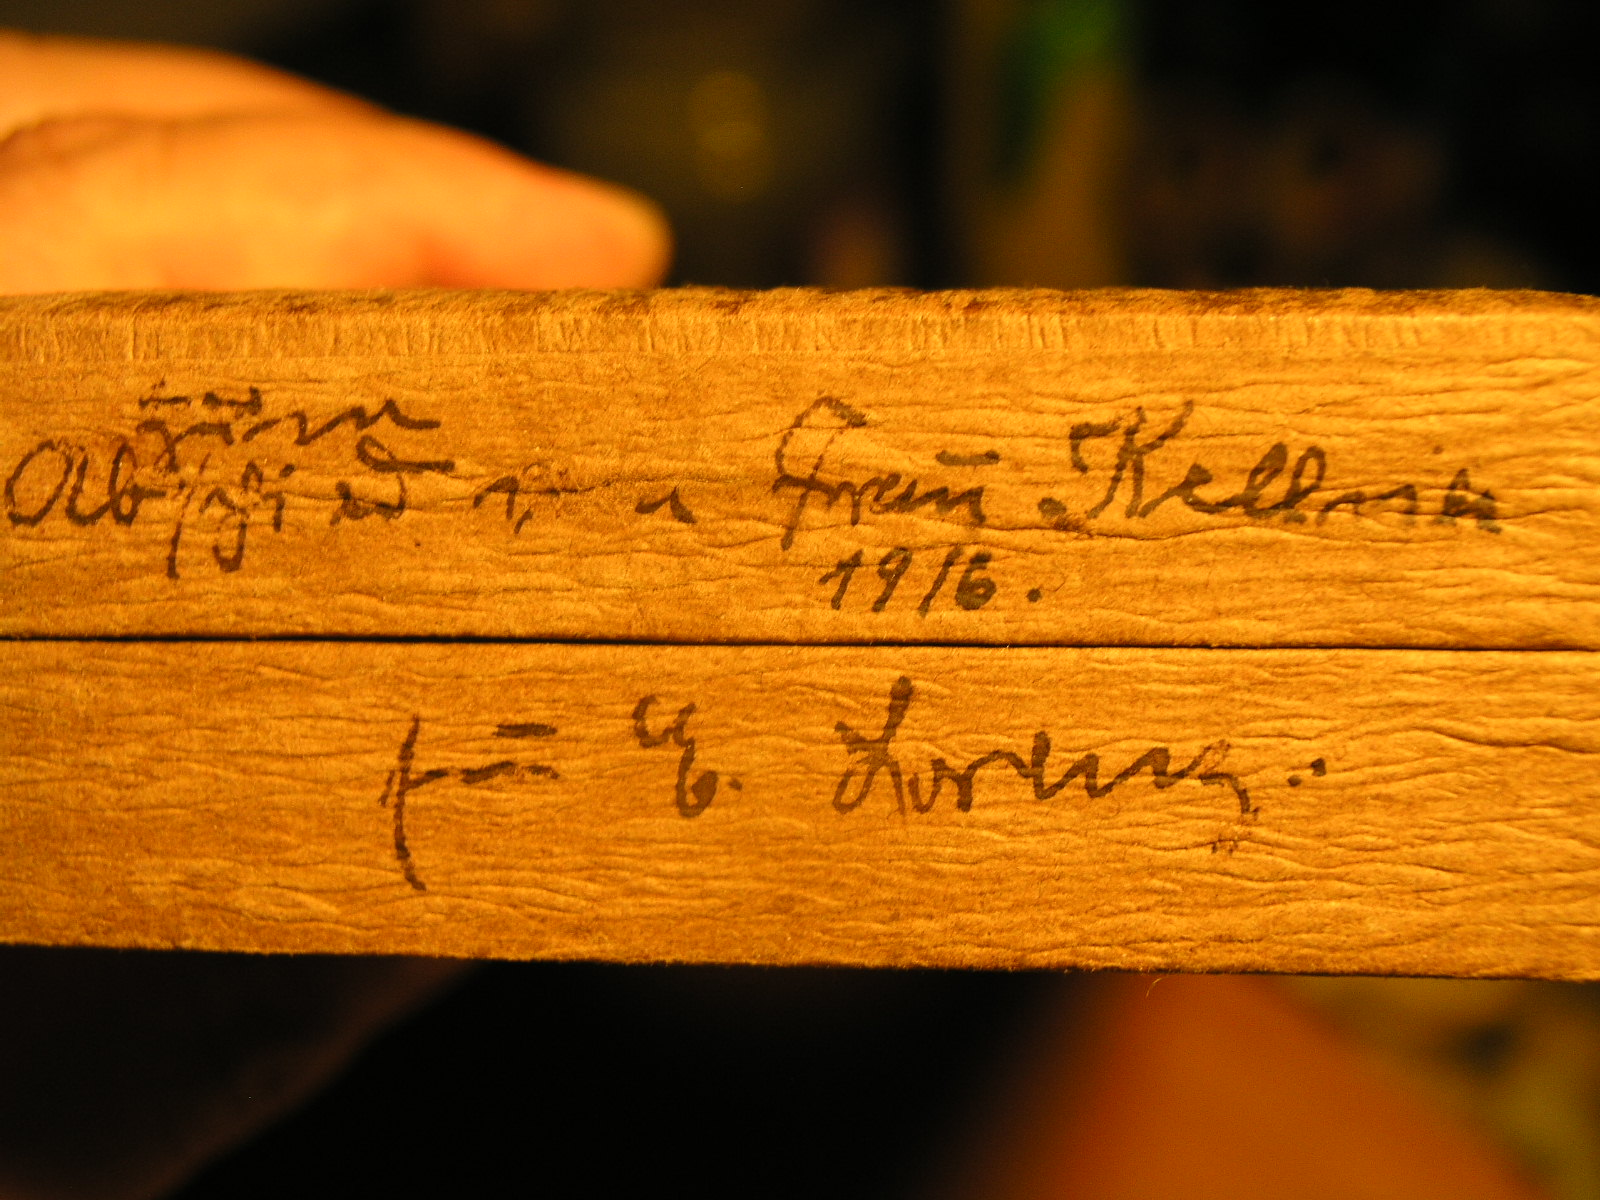 zum
Abschied v. Frau Kellner
1916.
für E. Lorenz.